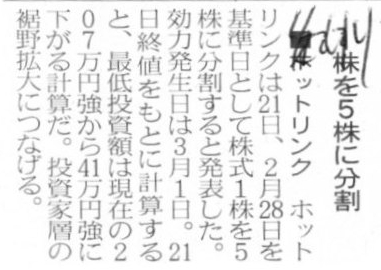 1株を5株に分割
ホットリンク　ホット
リンクは21日、2月28日を
基準日として株式1株を5
株に分割すると発表した。
効力発生日は3月1日。21
日終値をもとに計算する
と、最低投資額は現在の2
07万円強から41万円強に
下がる計算だ。投資家層の
裾野拡大につなげる。